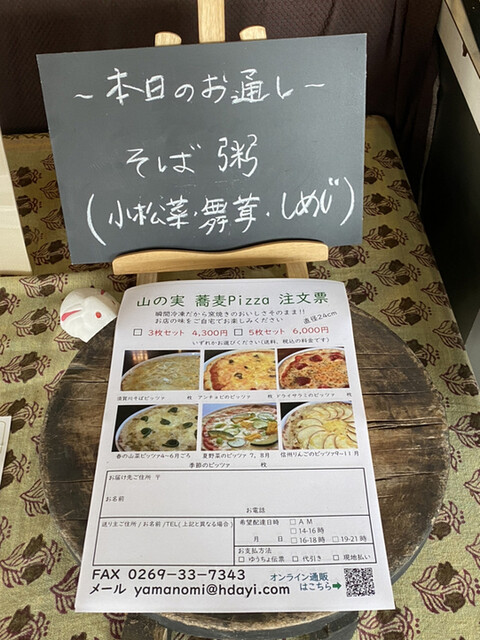 ~本日のお通し~
そば粥
(小松菜・舞茸・しめじ)
山の実 蕎麦Pizza 注文票
瞬間冷凍だから窯焼きのおいしさそのまま!!
お店の味をご自宅でお楽しみください
直径24cm
□ 3枚セット 4,300円 □ 5枚セット 6,000円
いずれかお選びください(送料、税込の料金です)
須賀川そばピッツァ 枚
アンチョビのピッツァ 枚
ドライサラミのピッツァ 枚
春の山菜ピッツァ4~6月ごろ
夏野菜のピッツァ 7,8月
信州りんごのピッツァ9~11月
季節のピッツァ 枚
お届け先ご住所 〒
お名前
お電話
送り主ご住所/お名前/TEL(上記と異なる場合)
希望配達日時
月 日
□ AM
□ 14-16時
□ 16-18時 □ 19-21時
お支払方法
□ ゆうちょ伝票 □ 代引き □ 現地払い
FAX 0269-33-7343
メール yamanomi@hdayi.com
オンライン通販
はこちら→